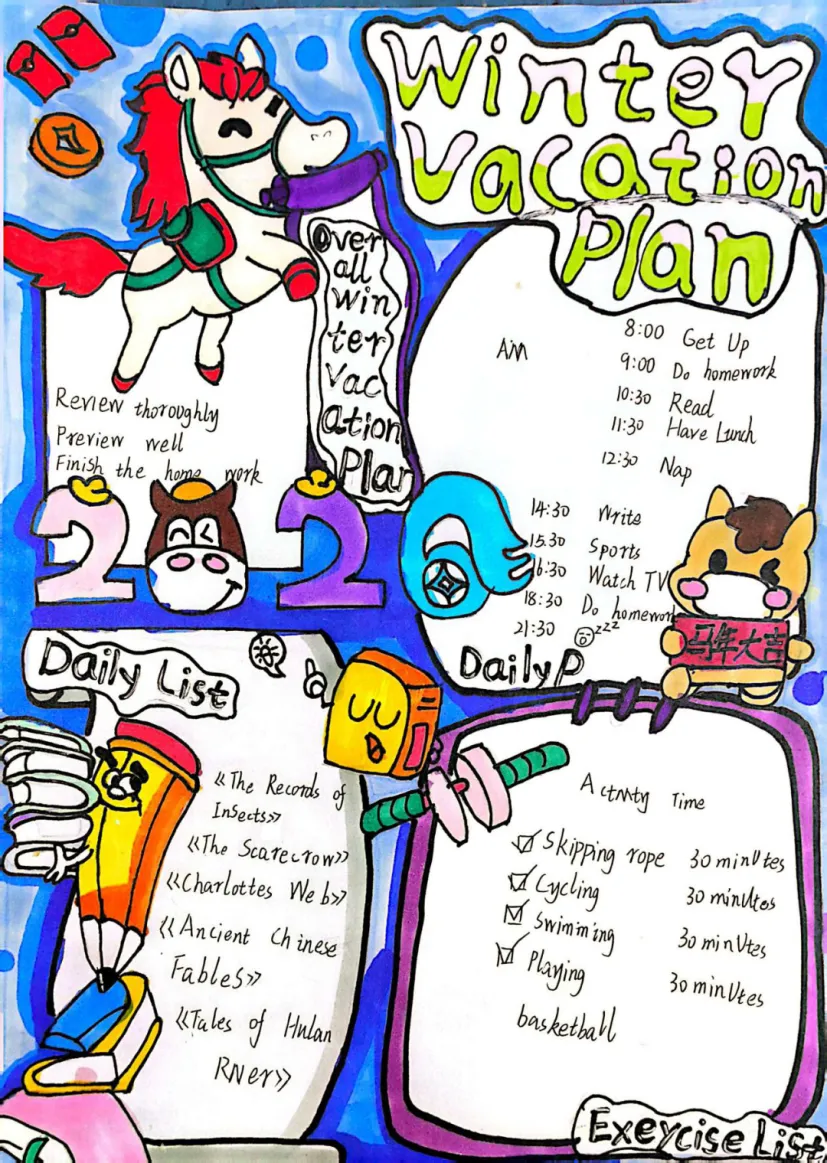 Winter
Vacation
Plan
Over
all
win
ter
vac
ation
Plan
Review thoroughly
Preview well
Finish the home work
2026
AM
8:00 Get Up
9:00 Do homework
10:30 Read
11:30 Have Lunch
12:30 Nap
14:30 Write
15.30 Sports
16:30 Watch TV
18:30 Do homework
21:30 zzz
Daily P
马年大吉
Daily List
《The Records of
Insects》
《The Scarecrow》
《Charlottes Web》
《Ancient Chinese
Fables》
《Tales of Hulan
River》
Activity Time
Skipping rope 30 minutes
Cycling 30 minutes
Swimming 30 minutes
Playing 30 minutes
basketball
Exeycise List